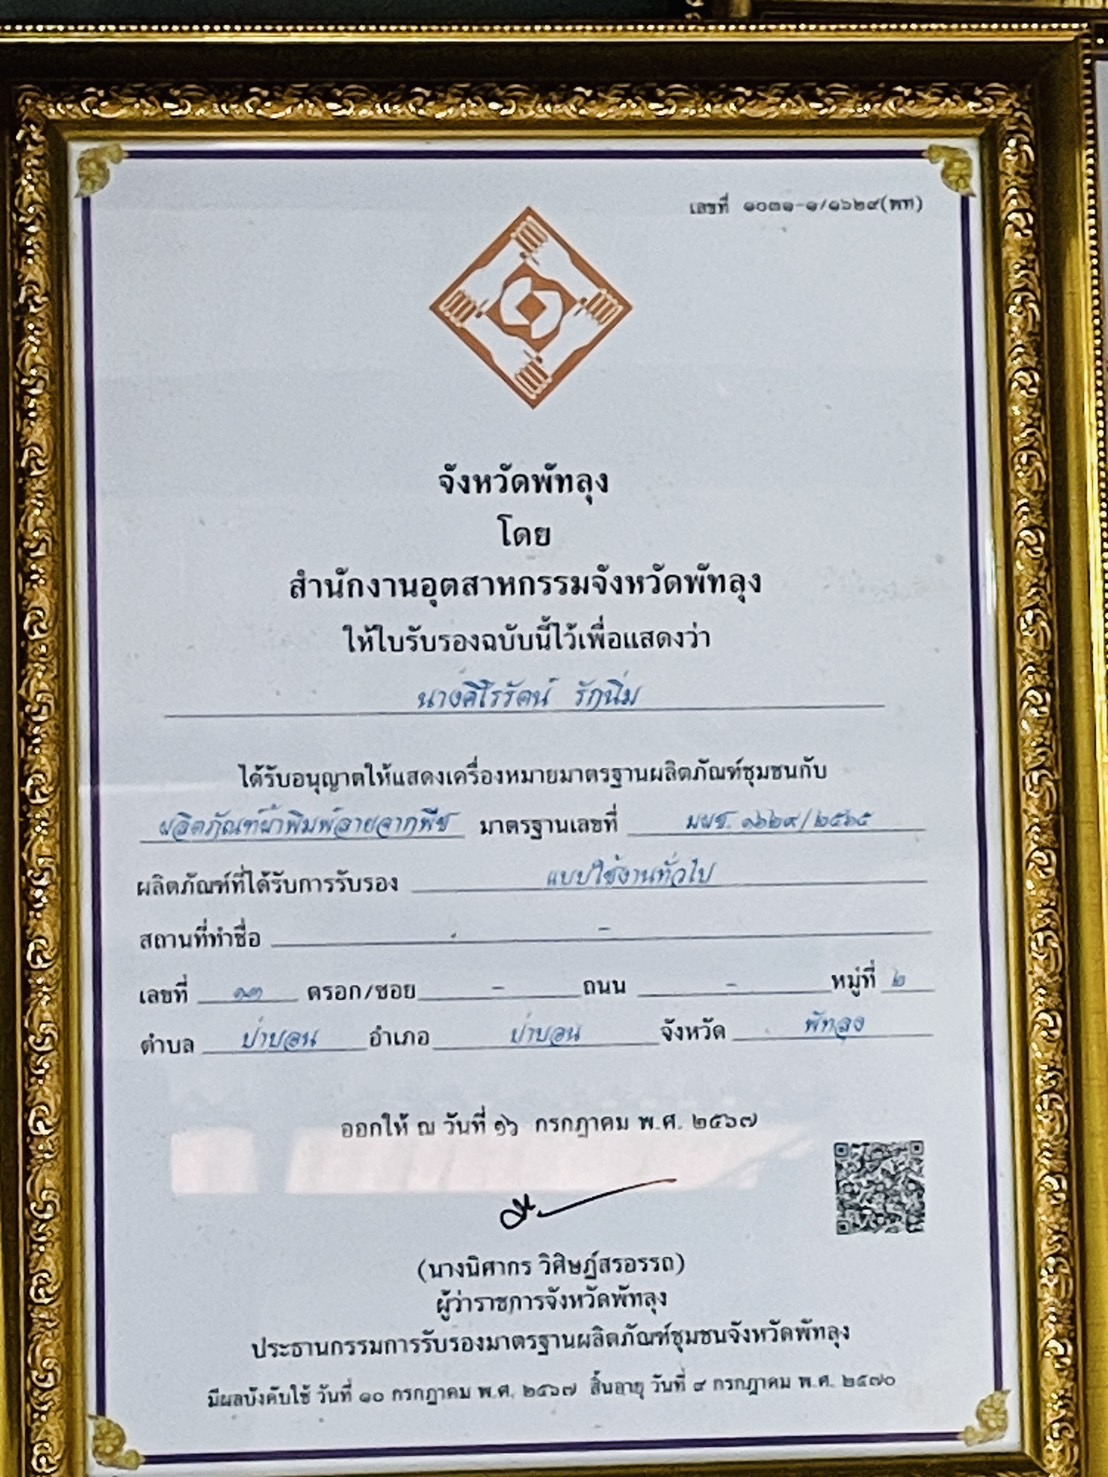 เลขที่ ๑๐๓๑-๑/๑๖๒๙(พท)
จังหวัดพัทลุง
โดย
สำนักงานอุตสาหกรรมจังหวัดพัทลุง
ให้ใบรับรองฉบับนี้ไว้เพื่อแสดงว่า
นางศิโรรัตน์ รักนิ่ม
ได้รับอนุญาตให้แสดงเครื่องหมายมาตรฐานผลิตภัณฑ์ชุมชนกับ
ผลิตภัณฑ์ผ้าพิมพ์ลายจากพืช มาตรฐานเลขที่ มผช. ๑๖๒๙/๒๕๖๕
ผลิตภัณฑ์ที่ได้รับการรับรอง แบบใช้งานทั่วไป
สถานที่ทำชื่อ -
เลขที่ ๑๓ ตรอก/ซอย - ถนน - หมู่ที่ ๒
ตำบล ป่าบอน อำเภอ ป่าบอน จังหวัด พัทลุง
ออกให้ ณ วันที่ ๑๖ กรกฎาคม พ.ศ. ๒๕๖๗
(นางนิศากร วิศิษฏ์สรอรรถ)
ผู้ว่าราชการจังหวัดพัทลุง
ประธานกรรมการรับรองมาตรฐานผลิตภัณฑ์ชุมชนจังหวัดพัทลุง
มีผลบังคับใช้ วันที่ ๑๐ กรกฎาคม พ.ศ. ๒๕๖๗ สิ้นอายุ วันที่ ๙ กรกฎาคม พ.ศ. ๒๕๗๐